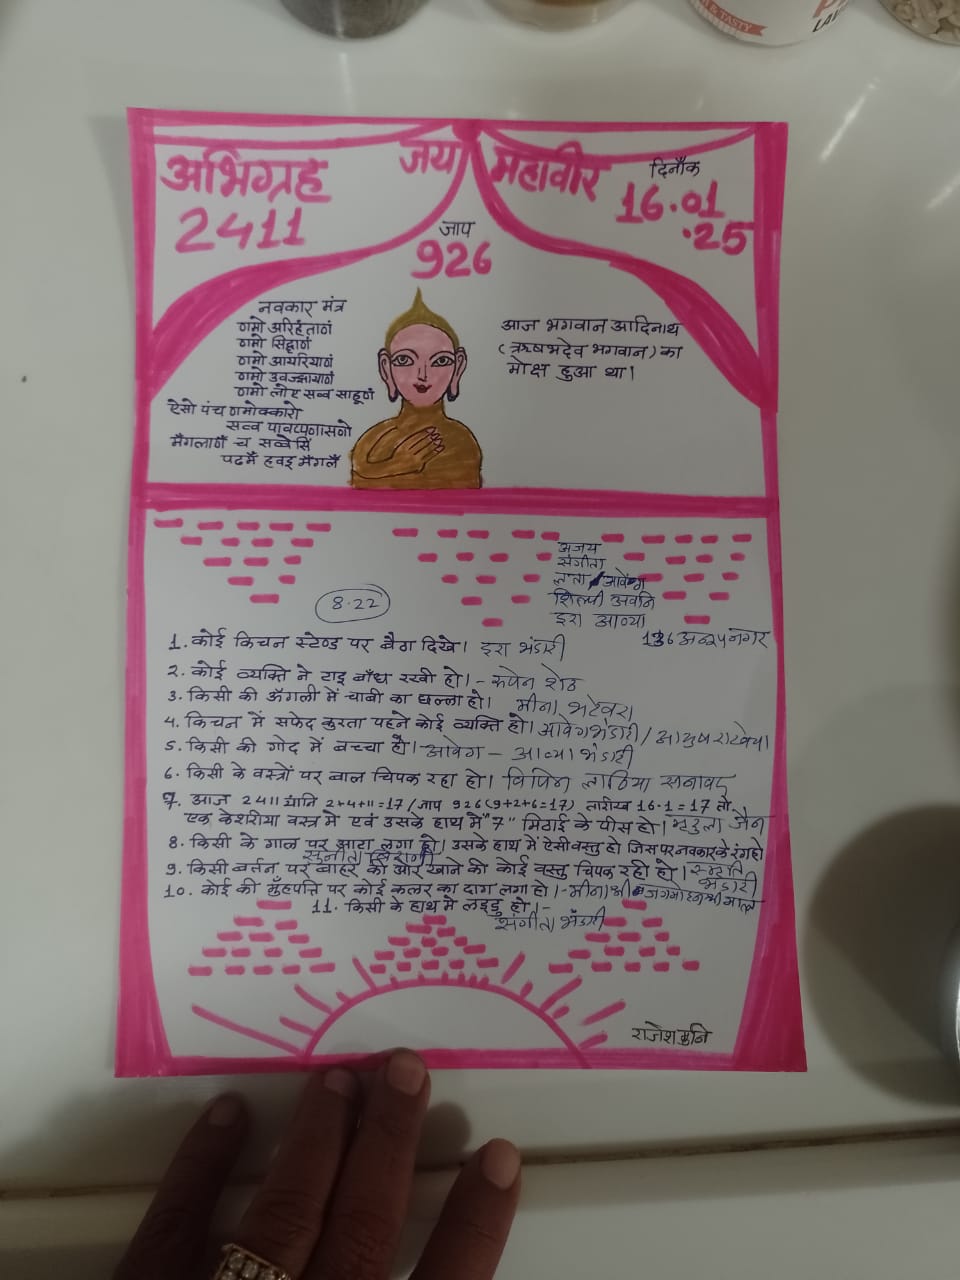 & TASTY
अभिग्रह
2411
जय महावीर
दिनाँक
16.01
.25
जाप
926
नवकार मंत्र
णमो अरिहंताणं
णमो सिद्धाणं
णमो आयरियाणं
णमो उवज्झायाणं
णमो लोए सव्व साहूणं
ऐसो पंच णमोक्कारो
सव्व पावप्पणासणो
मंगलाणं च सव्वेसिं
पढमं हवइ मंगलं
आज भगवान आदिनाथ
(ऋषभदेव भगवान) का
मोक्ष हुआ था।
अजय
संगीता
लता आवेग
शिल्पी अवनि
इरा आव्या
नगर
8.22
1. कोई किचन स्टेण्ड पर बैठा दिखे। इरा भंडारी
2. कोई व्यक्ति ने टाइ बाँध रखी हो। - रुपेन शेठ
3. किसी की अँगली में चाबी का छल्ला हो। मीना भटेवरा
4. किचन में सफेद कुरता पहने कोई व्यक्ति हो। आवेग भंडारी /
5. किसी की गोद में बच्चा हो। - आवेग - आव्या भंडारी
6. किसी के वस्त्रों पर बाल चिपक रहा हो। विपिन लाठिया सनावद
7. आज 2411 यानि 2+4+11=17 / जाप 926 (9+2+6=17) तारीख 16.1=17 तो
एक केशरीया वस्त्र में एवं उसके हाथ में "7" मिठाई के पीस हो। मृदुला जैन
8. किसी के गाल पर आटा लगा हो। उसके हाथ में ऐसी वस्तु हो जिस पर नवकार के रंग हो
सुनीता
9. किसी बर्तन पर बाहर की ओर खाने की कोई वस्तु चिपक रही हो। स्मृति
भंडारी
10. कोई की मुँहपत्ति पर कोई कलर का दाग लगा हो। - मीना श्री
11. किसी के हाथ में लड्डु हो। -
संगीता भंडारी
राजेश मुनि